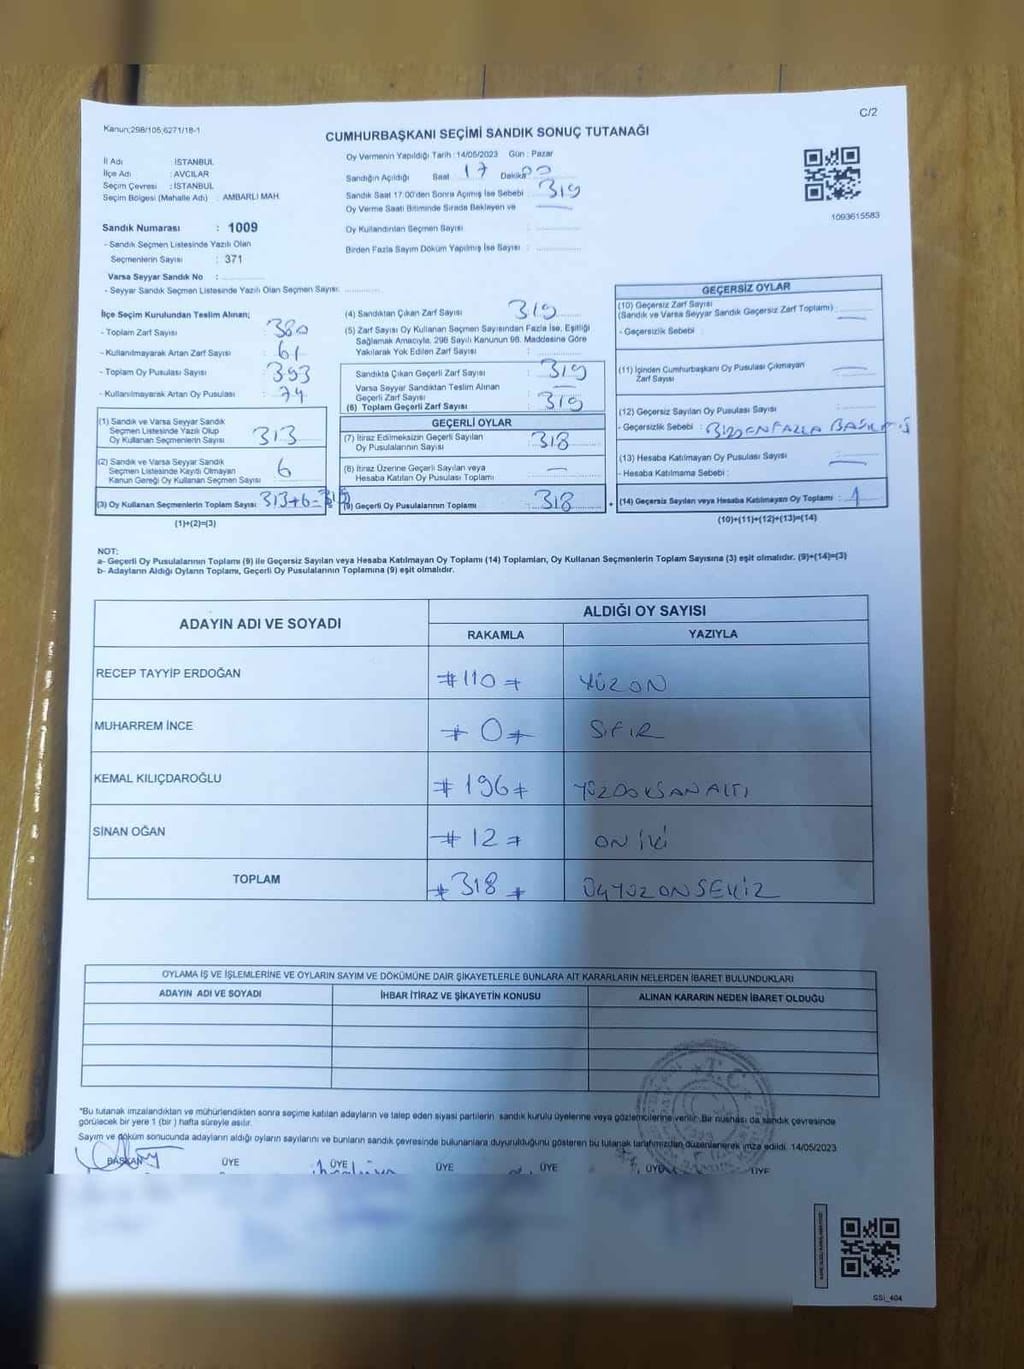 Kanun;298/105,6271/18-1
C/2
CUMHURBAŞKANI SEÇİMİ SANDIK SONUÇ TUTANAĞI
İl Adı : İSTANBUL
İlçe Adı : AVCILAR
Seçim Çevresi : İSTANBUL
Seçim Bölgesi (Mahalle Adı) : AMBARLI MAH.
Oy Vermenin Yapıldığı Tarih :14/05/2023 Gün : Pazar
Sandığın Açıldığı Saat 17 Dakika 00
Sandık Saat 17.00'den Sonra Açılmış İse Sebebi : 319
Oy Verme Saati Bitiminde Sırada Bekleyen ve
Oy Kullandırılan Seçmen Sayısı :
Birden Fazla Sayım Döküm Yapılmış İse Sayısı :
1093615583
Sandık Numarası : 1009
- Sandık Seçmen Listesinde Yazılı Olan
Seçmenlerin Sayısı : 371
Varsa Seyyar Sandık No :
- Seyyar Sandık Seçmen Listesinde Yazılı Olan Seçmen Sayısı:
İlçe Seçim Kurulundan Teslim Alınan;
- Toplam Zarf Sayısı : 380
- Kullanılmayarak Artan Zarf Sayısı : 61
- Toplam Oy Pusulası Sayısı : 393
- Kullanılmayarak Artan Oy Pusulası : 74
(1) Sandık ve Varsa Seyyar Sandık
Seçmen Listesinde Yazılı Olup
Oy Kullanan Seçmenlerin Sayısı : 313
(2) Sandık ve Varsa Seyyar Sandık
Seçmen Listesinde Kaydı Olmayan
Kanun Gereği Oy Kullanan Seçmen Sayısı : 6
(3) Oy Kullanan Seçmenlerin Toplam Sayısı : 313+6=319
(1)+(2)=(3)
(4) Sandıktan Çıkan Zarf Sayısı : 319
(5) Zarf Sayısı Oy Kullanan Seçmen Sayısından Fazla İse, Eşitliği
Sağlamak Amacıyla, 298 Sayılı Kanunun 98. Maddesine Göre
Yakılarak Yok Edilen Zarf Sayısı :
Sandıkta Çıkan Geçerli Zarf Sayısı : 319
Varsa Seyyar Sandıktan Teslim Alınan
Geçerli Zarf Sayısı : —
(6) Toplam Geçerli Zarf Sayısı : 319
GEÇERLİ OYLAR
(7) İtiraz Edilmeksizin Geçerli Sayılan
Oy Pusulalarının Sayısı : 318
(8) İtiraz Üzerine Geçerli Sayılan veya
Hesaba Katılan Oy Pusulası Toplamı : —
(9) Geçerli Oy Pusulalarının Toplamı : 318
GEÇERSİZ OYLAR
(10) Geçersiz Zarf Sayısı
(Sandık ve Varsa Seyyar Sandık Geçersiz Zarf Toplamı) : —
- Geçersizlik Sebebi :
(11) İçinden Cumhurbaşkanı Oy Pusulası Çıkmayan
Zarf Sayısı : —
(12) Geçersiz Sayılan Oy Pusulası Sayısı :
- Geçersizlik Sebebi : BİRDEN FAZLA
(13) Hesaba Katılmayan Oy Pusulası Sayısı : —
- Hesaba Katılmama Sebebi :
+ (14) Geçersiz Sayılan veya Hesaba Katılmayan Oy Toplamı : 1
(10)+(11)+(12)+(13)=(14)
NOT:
a- Geçerli Oy Pusulalarının Toplamı (9) ile Geçersiz Sayılan veya Hesaba Katılmayan Oy Toplamı (14) Toplamları, Oy Kullanan Seçmenlerin Toplam Sayısına (3) eşit olmalıdır. (9)+(14)=(3)
b- Adayların Aldığı Oyların Toplamı, Geçerli Oy Pusulalarının Toplamına (9) eşit olmalıdır.
ADAYIN ADI VE SOYADI
ALDIĞI OY SAYISI
RAKAMLA YAZIYLA
RECEP TAYYİP ERDOĞAN #110# YÜZON
MUHARREM İNCE #0# SIFIR
KEMAL KILIÇDAROĞLU #196# YÜZDOKSANALTI
SİNAN OĞAN #12# ON İKİ
TOPLAM #318# ÜÇYÜZONSEKİZ
OYLAMA İŞ VE İŞLEMLERİNE VE OYLARIN SAYIM VE DÖKÜMÜNE DAİR ŞİKAYETLERLE BUNLARA AİT KARARLARIN NELERDEN İBARET BULUNDUKLARI
ADAYIN ADI VE SOYADI İHBAR İTİRAZ VE ŞİKAYETİN KONUSU ALINAN KARARIN NEDEN İBARET OLDUĞU
*Bu tutanak imzalandıktan ve mühürlendikten sonra seçime katılan adayların ve talep eden siyasi partilerin sandık kurulu üyelerine veya gözlemcilerine verilir. Bir nüshası da sandık çevresinde
görülecek bir yere 1 (bir ) hafta süreyle asılır.
Sayım ve döküm sonucunda adayların aldığı oyların sayılarını ve bunların sandık çevresinde bulunanlara duyurulduğunu gösteren bu tutanak tarafımızdan düzenlenerek imza edildi. 14/05/2023
BAŞKAN ÜYE ÜYE ÜYE ÜYE ÜYE ÜYE
GSİ_404